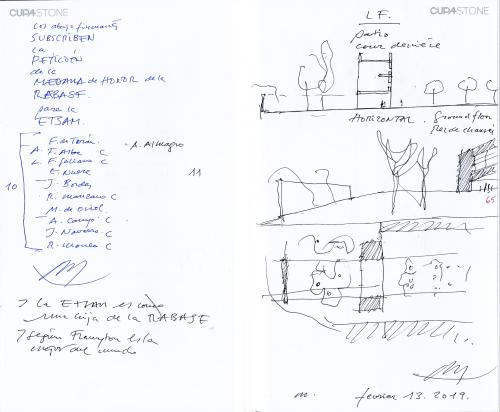 CUPA STONE
Los abajo firmantes
SUBSCRIBEN
la
PETICIÓN
de la
MEDALLA de HONOR de la
RABASF.
para la
ETSAM.
F. de Terán.
A. T. Alba C
L. F. Galiano C
E. Nuere
J. Bordes
R. Manzano C
M. de Oriol
A. Campo C
J. Navarro C
R. Moneo C
10
A. Almagro
11
> La ETSAM es como
una hija de la RABASF
> Según Frampton es la
mejor del mundo
CUPA STONE
L F.
patio
cour derrière
HORIZONTAL. ground floor
65
m. fevrier 13. 2019.